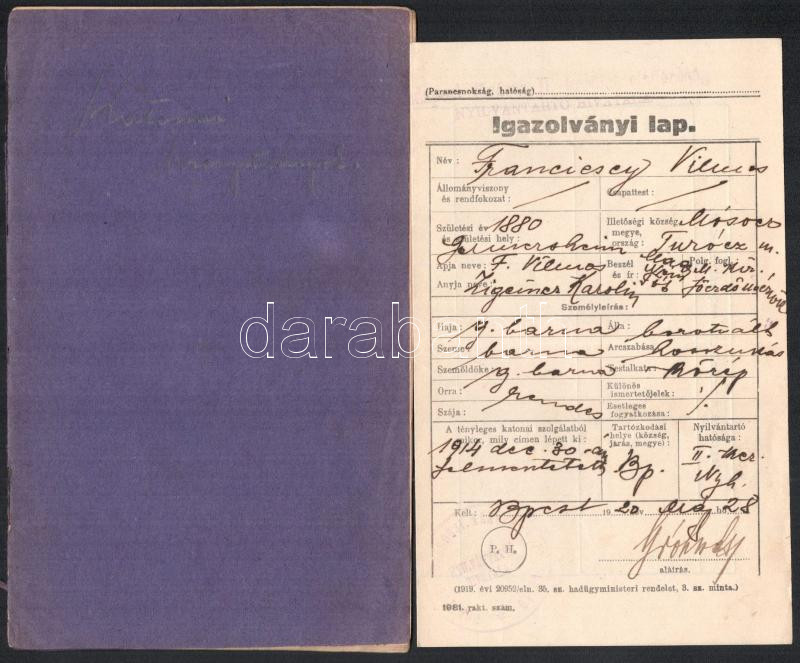 Katonai
(Parancsnokság, hatóság)
NYILVÁNTARTÓ HIVATALA
Igazolványi lap.
Név : Franciscy Vilmos
Állományviszony és rendfokozat : / Csapattest : /
Születési év és születési hely : 1880
Illetőségi község, megye, ország : Mósocz Turócz m.
Apja neve : F. Vilmos
Beszél és ír :
Polg. fogl. : M. kir.
Anyja neve : Karolin
Személyleírás :
Haja : g. barna Álla : borotvált
Szeme : barna Arcszabása : hosszukás
Szemöldöke : g. barna Testalkata : közép
Orra : rendes Különös ismertetőjelek :
Szája : Esetleges fogyatkozása : ./.
A tényleges katonai szolgálatból mikor, mily címen lépett ki :
Tartózkodási helye (község, járás, megye) :
Nyilvántartó hatósága :
1914 dec. 30-án
Bp.
II. ker.
Nyh.
Kelt : Bpest 1920 év Máj 28
P. H.
aláírás.
(1919. évi 20952/eln. 35. sz. hadügyminiszteri rendelet, 3. sz. minta.)
1981. rakt. szám.
darabanth.com